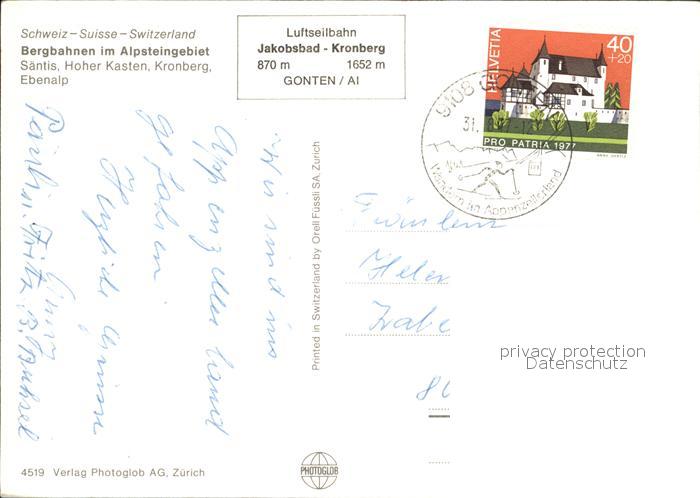 Schweiz – Suisse – Switzerland
Bergbahnen im Alpsteingebiet
Säntis, Hoher Kasten, Kronberg,
Ebenalp
Luftseilbahn
Jakobsbad - Kronberg
870 m 1652 m
GONTEN / AI
HELVETIA
40
+20
PRO PATRIA 1977
9108 GONTEN
31.
Wandern im Appenzellerland
Wir sind ins
Appenzeller Land
gefahren
Herzliche Grüsse
Fräulein
Helen
privacy protection
Datenschutz
80
Printed in Switzerland by Orell Füssli SA, Zürich
4519 Verlag Photoglob AG, Zürich
PHOTOGLOB